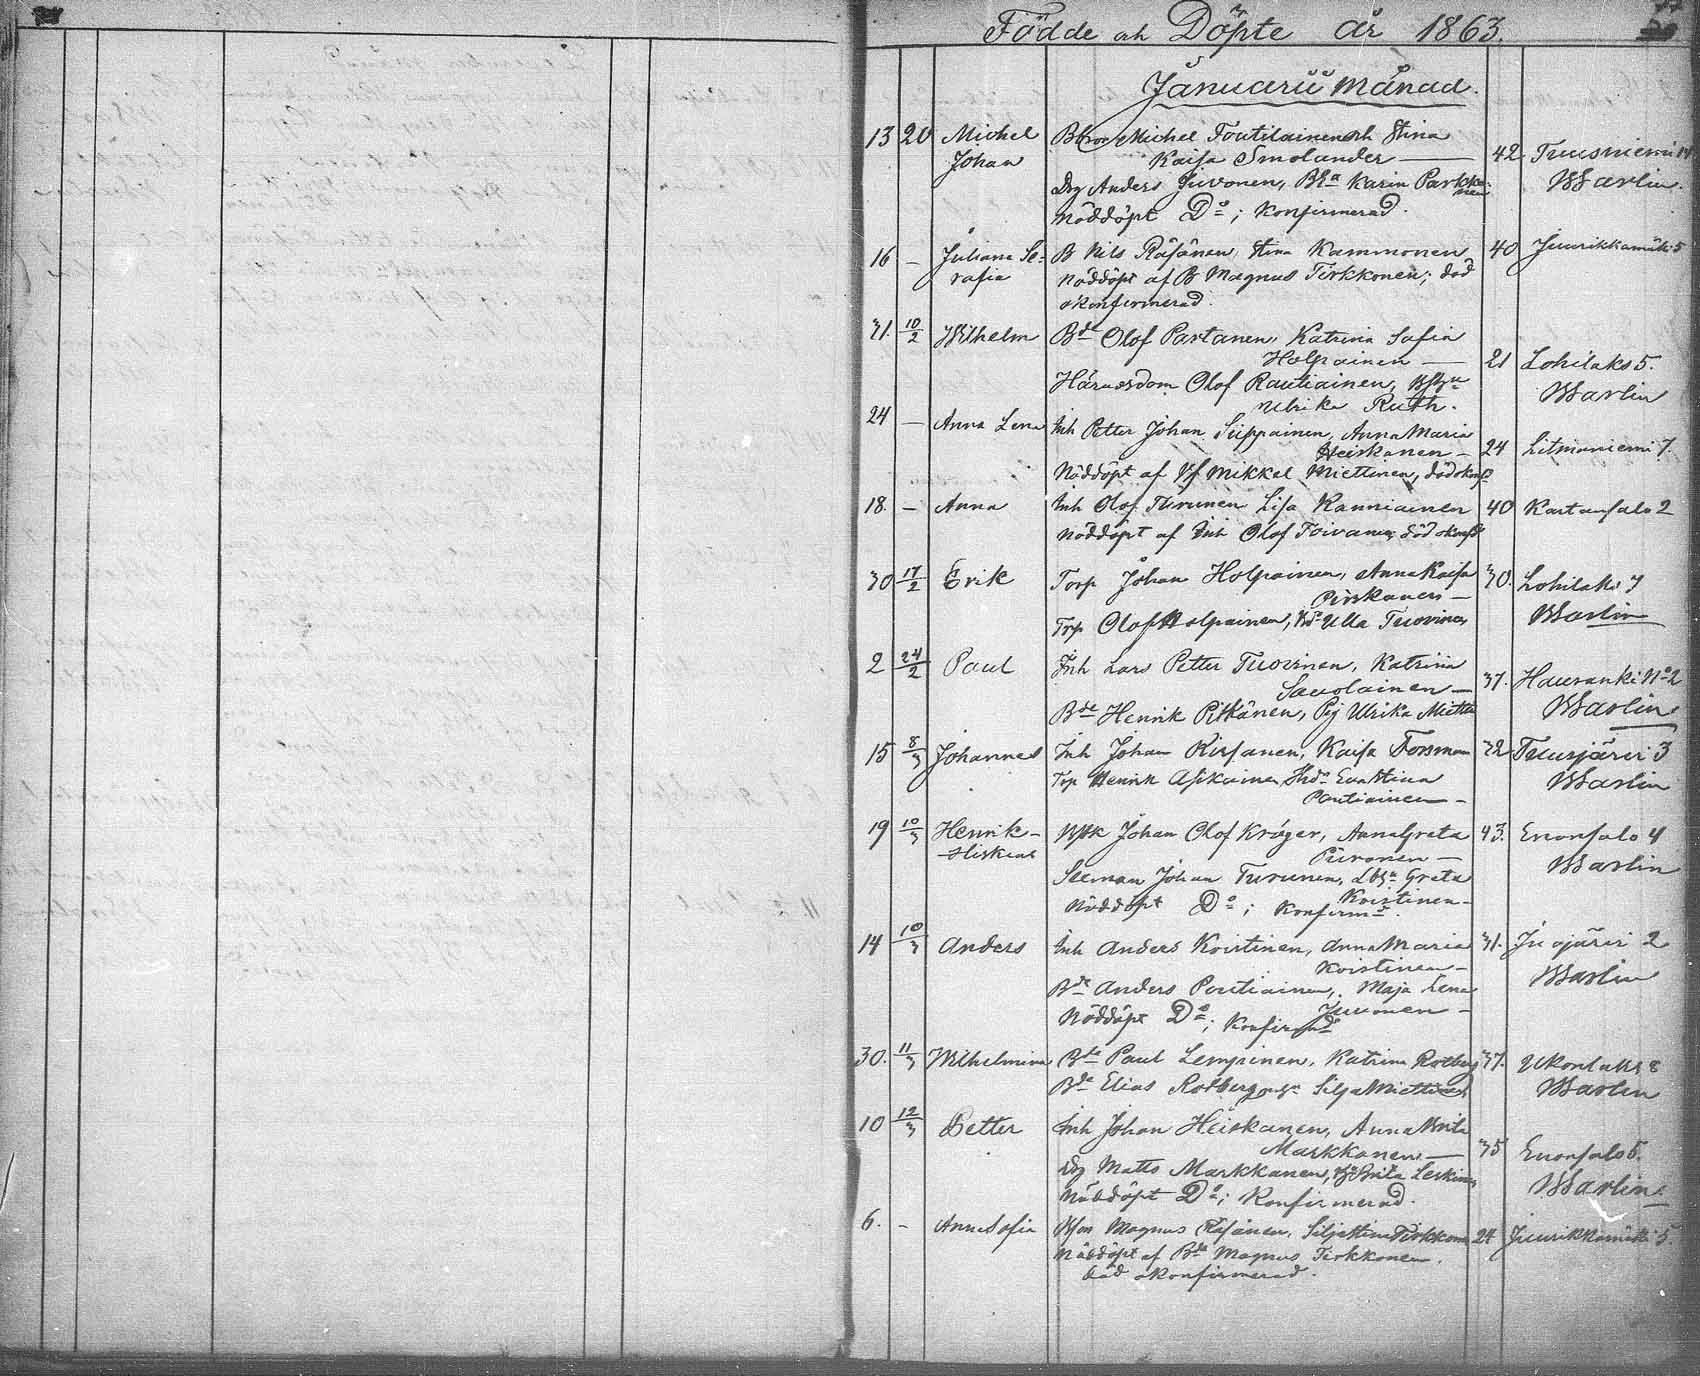 Födde och Döpte år 1863.
Januarii månad.
13 20 Michel Bbror Michel Toutilainen och Stina
Johan Kaisa Smolander — 42 Tuusniemi 14
Drg Anders Juvonen, Bha Karin Parkkinen Warlin.
nöddöpt Do; konfirmerad.
16 — Juliana Se- B Nils Räsänen, Stina Kammonen 40 Juurikkamäki 5
rafia nöddöpt af B Magnus Tirkkonen; död
okonfirmerad.
31. 10/2 Wilhelm Bde Olof Partanen, Katrina Safia
Holpainen — 21 Lohilaks 5.
Häradsdom Olof Rautiainen, Warlin
Ulrika Ruth.
24 — Anna Lena Inh Petter Johan Siippainen, Anna Maria
Heiskanen — 24 Litmaniemi 7.
Nöddöpt af Mikkel Miettinen, död okonf
18. — Anna Inh Olof Turunen Lisa Ranniainen 40 Kartansalo 2
nöddöpt af Inh Olof Toivanen, död okonf
30 17/2 Erik Torp Johan Holpainen, Anna Kaisa 30. Lohilaks 7
Pirskanen —
Trp Olof Holpainen, Ulla Tuovinen Warlin
2 24/2 Paul Inh Lars Petter Tuovinen, Katrina
Savolainen — 37. Hauranki No 2
Bde Henrik Pitkänen, Pig Ulrika Miett Warlin
15 8/3 Johannes Inh Johan Kirsanen, Kaisa Forsman 32 Tuusjärvi 3
Trp Henrik Asikainen, Eva Stina Warlin
Pontiainen —
19 10/3 Henrik- Johan Olof Kröger, Anna Greta 43. Enonsalo 4
Hiskias Piironen — Warlin
Seeman Johan Turunen, Greta
Koistinen —
Nöddöpt Do; konfirmd.
14 10/3 Anders Inh Anders Koistinen, Anna Maria 31. Juojärvi 2
Koistinen — Warlin
Bde Anders Pontiainen, Maja Lena
Juvonen —
Nöddöpt Do; konfirmd
30. 11/3 Wilhelmina Bde Paul Lempinen, Katrina Rotberg 37. Ukonlaks 8
Bde Elias Rotberg Silja Miettinen Warlin
10 12/3 Petter Inh Johan Heiskanen, Anna Brita
Markkanen — 35 Enonsalo 5.
Drg Matts Markkanen, Brita Leskinen
Nöddöpt Do; Konfirmerad. Warlin.
6. — Anna Sofia Magnus Räsänen, Silja Stina Tirkkonen 24 Juurikkamäki 5.
Nöddöpt af Bde Magnus Tirkkonen.
död okonfirmerad.